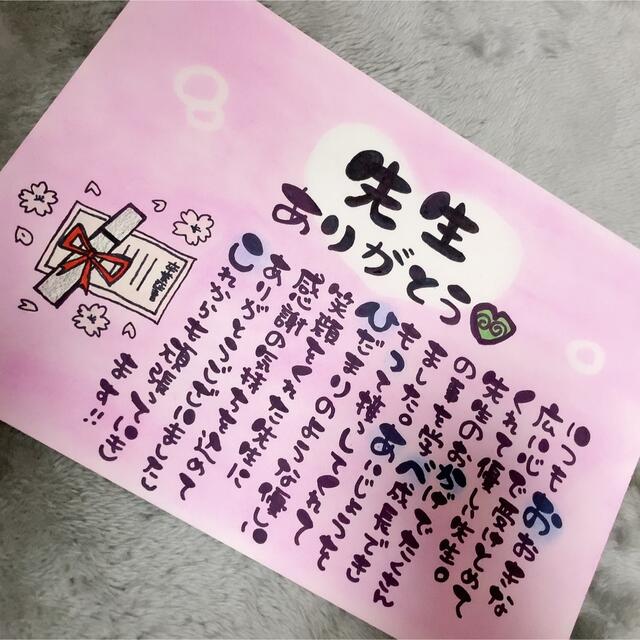 先生
ありがとう
いつもおおきな
広い心で受けとめて
くれて優しい先生。
先生のおかげでたくさん
の事を学べ成長でき
ました。あいじょうを
もって接してくれて
ひだまりのような優しい
笑顔をくれた先生に
感謝の気持ちを込めて
ありがとうございました
これからも頑張っていき
ます!!
卒業証書